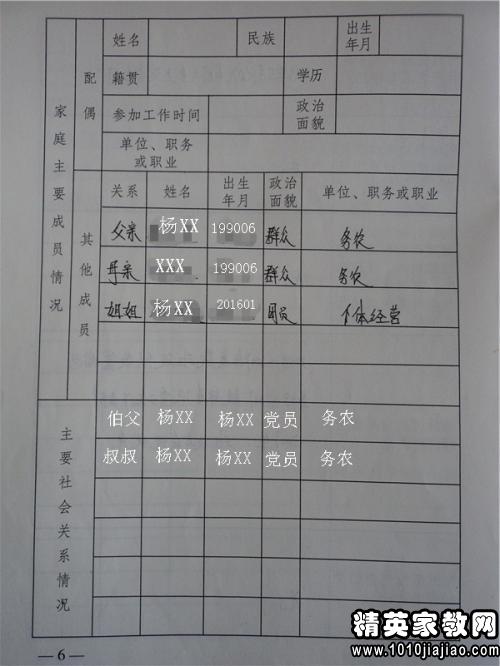 姓名 民族 出生年月
籍贯 学历
参加工作时间 政治面貌
单位、职务或职业
配偶
家庭主要成员情况
其他成员
关系 姓名 出生年月 政治面貌 单位、职务或职业
父亲 杨XX 199006 群众 务农
母亲 XXX 199006 群众 务农
姐姐 杨XX 201601 团员 个体经营
主要社会关系情况
伯父 杨XX 杨XX 党员 务农
叔叔 杨XX 杨XX 党员 务农
— 6 —
精英家教网
www.1010jiajiao.com